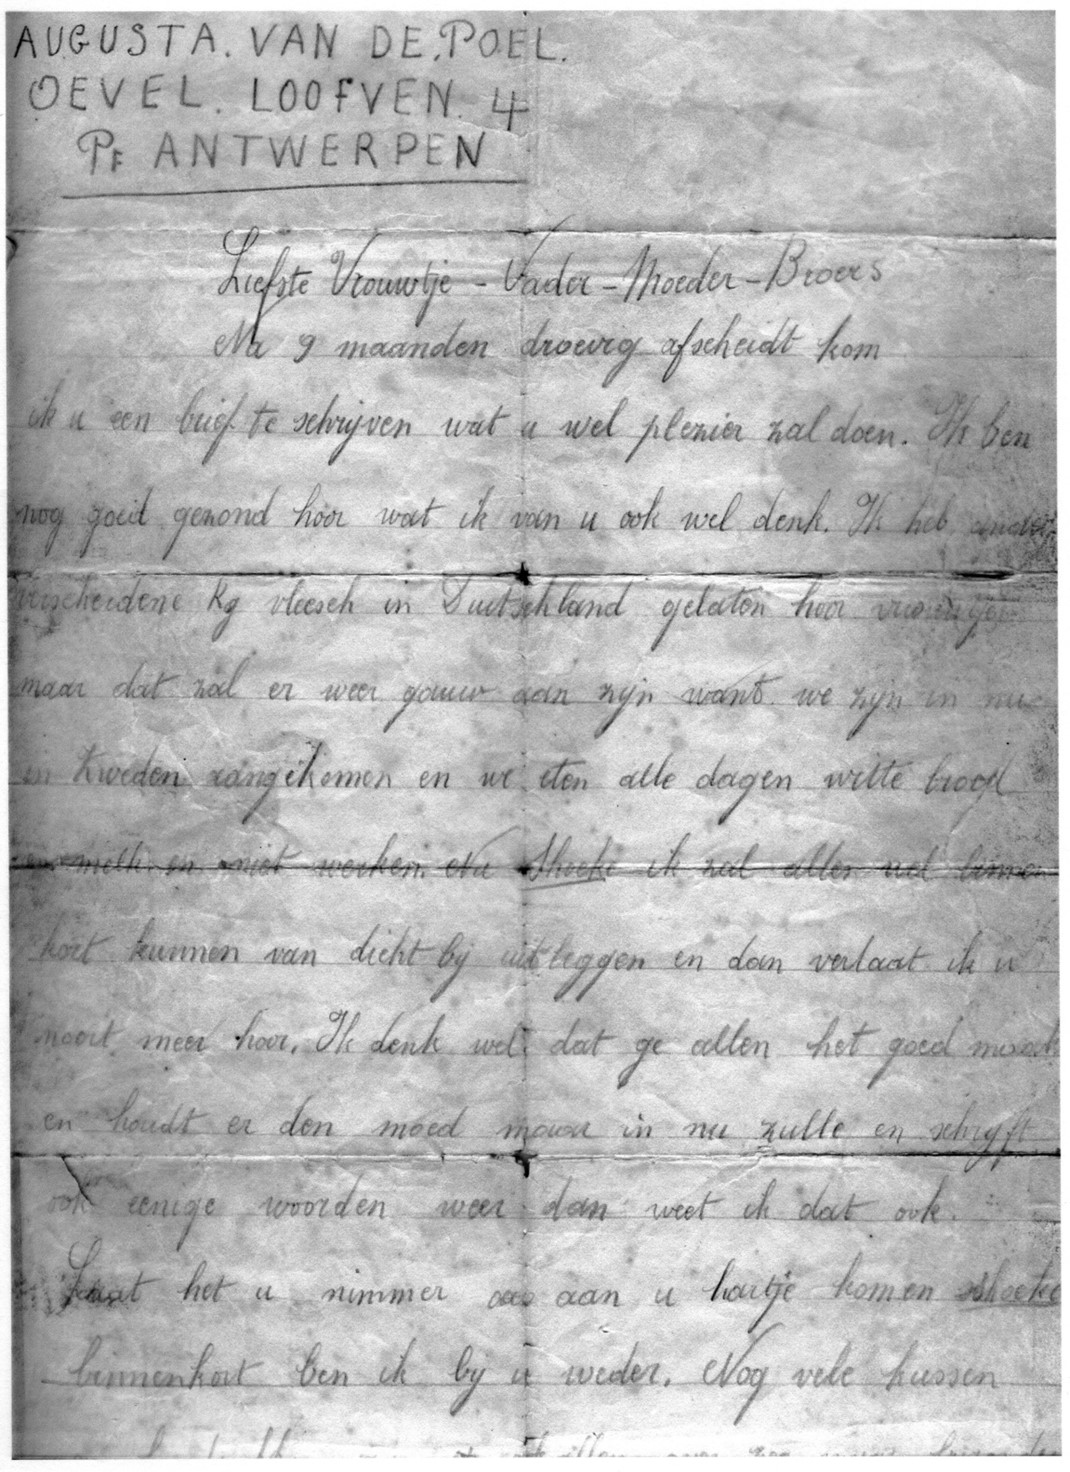 AUGUSTA. VAN DE. POEL.
OEVEL. LOOFVEN. 4
Pr ANTWERPEN
Liefste Vrouwtje - Vader - Moeder - Broers
Na 9 maanden droevig afscheidt kom
ik u een brief te schrijven wat u wel plezier zal doen. Ik ben
nog goed gezond hoor wat ik van u ook wel denk. Ik heb
verscheidene kg vleesch in Duitschland gelaten hoor
maar dat zal er weer gauw aan zijn want we zijn in nu
in Zweden aangekomen en we eten alle dagen witte brood
en melk en niet werken. Nu Shoeke ik zal alles wel binnen
kort kunnen van dicht bij uitleggen en dan verlaat ik u
nooit meer hoor. Ik denk wel dat ge allen het goed maakt
en houdt er den moed maar in nu zulle en schrijft
ook eenige woorden weer dan weet ik dat ook.
Laat het u nimmer aan u hartje komen shoeke
binnenkort ben ik bij u weder. Nog vele kussen